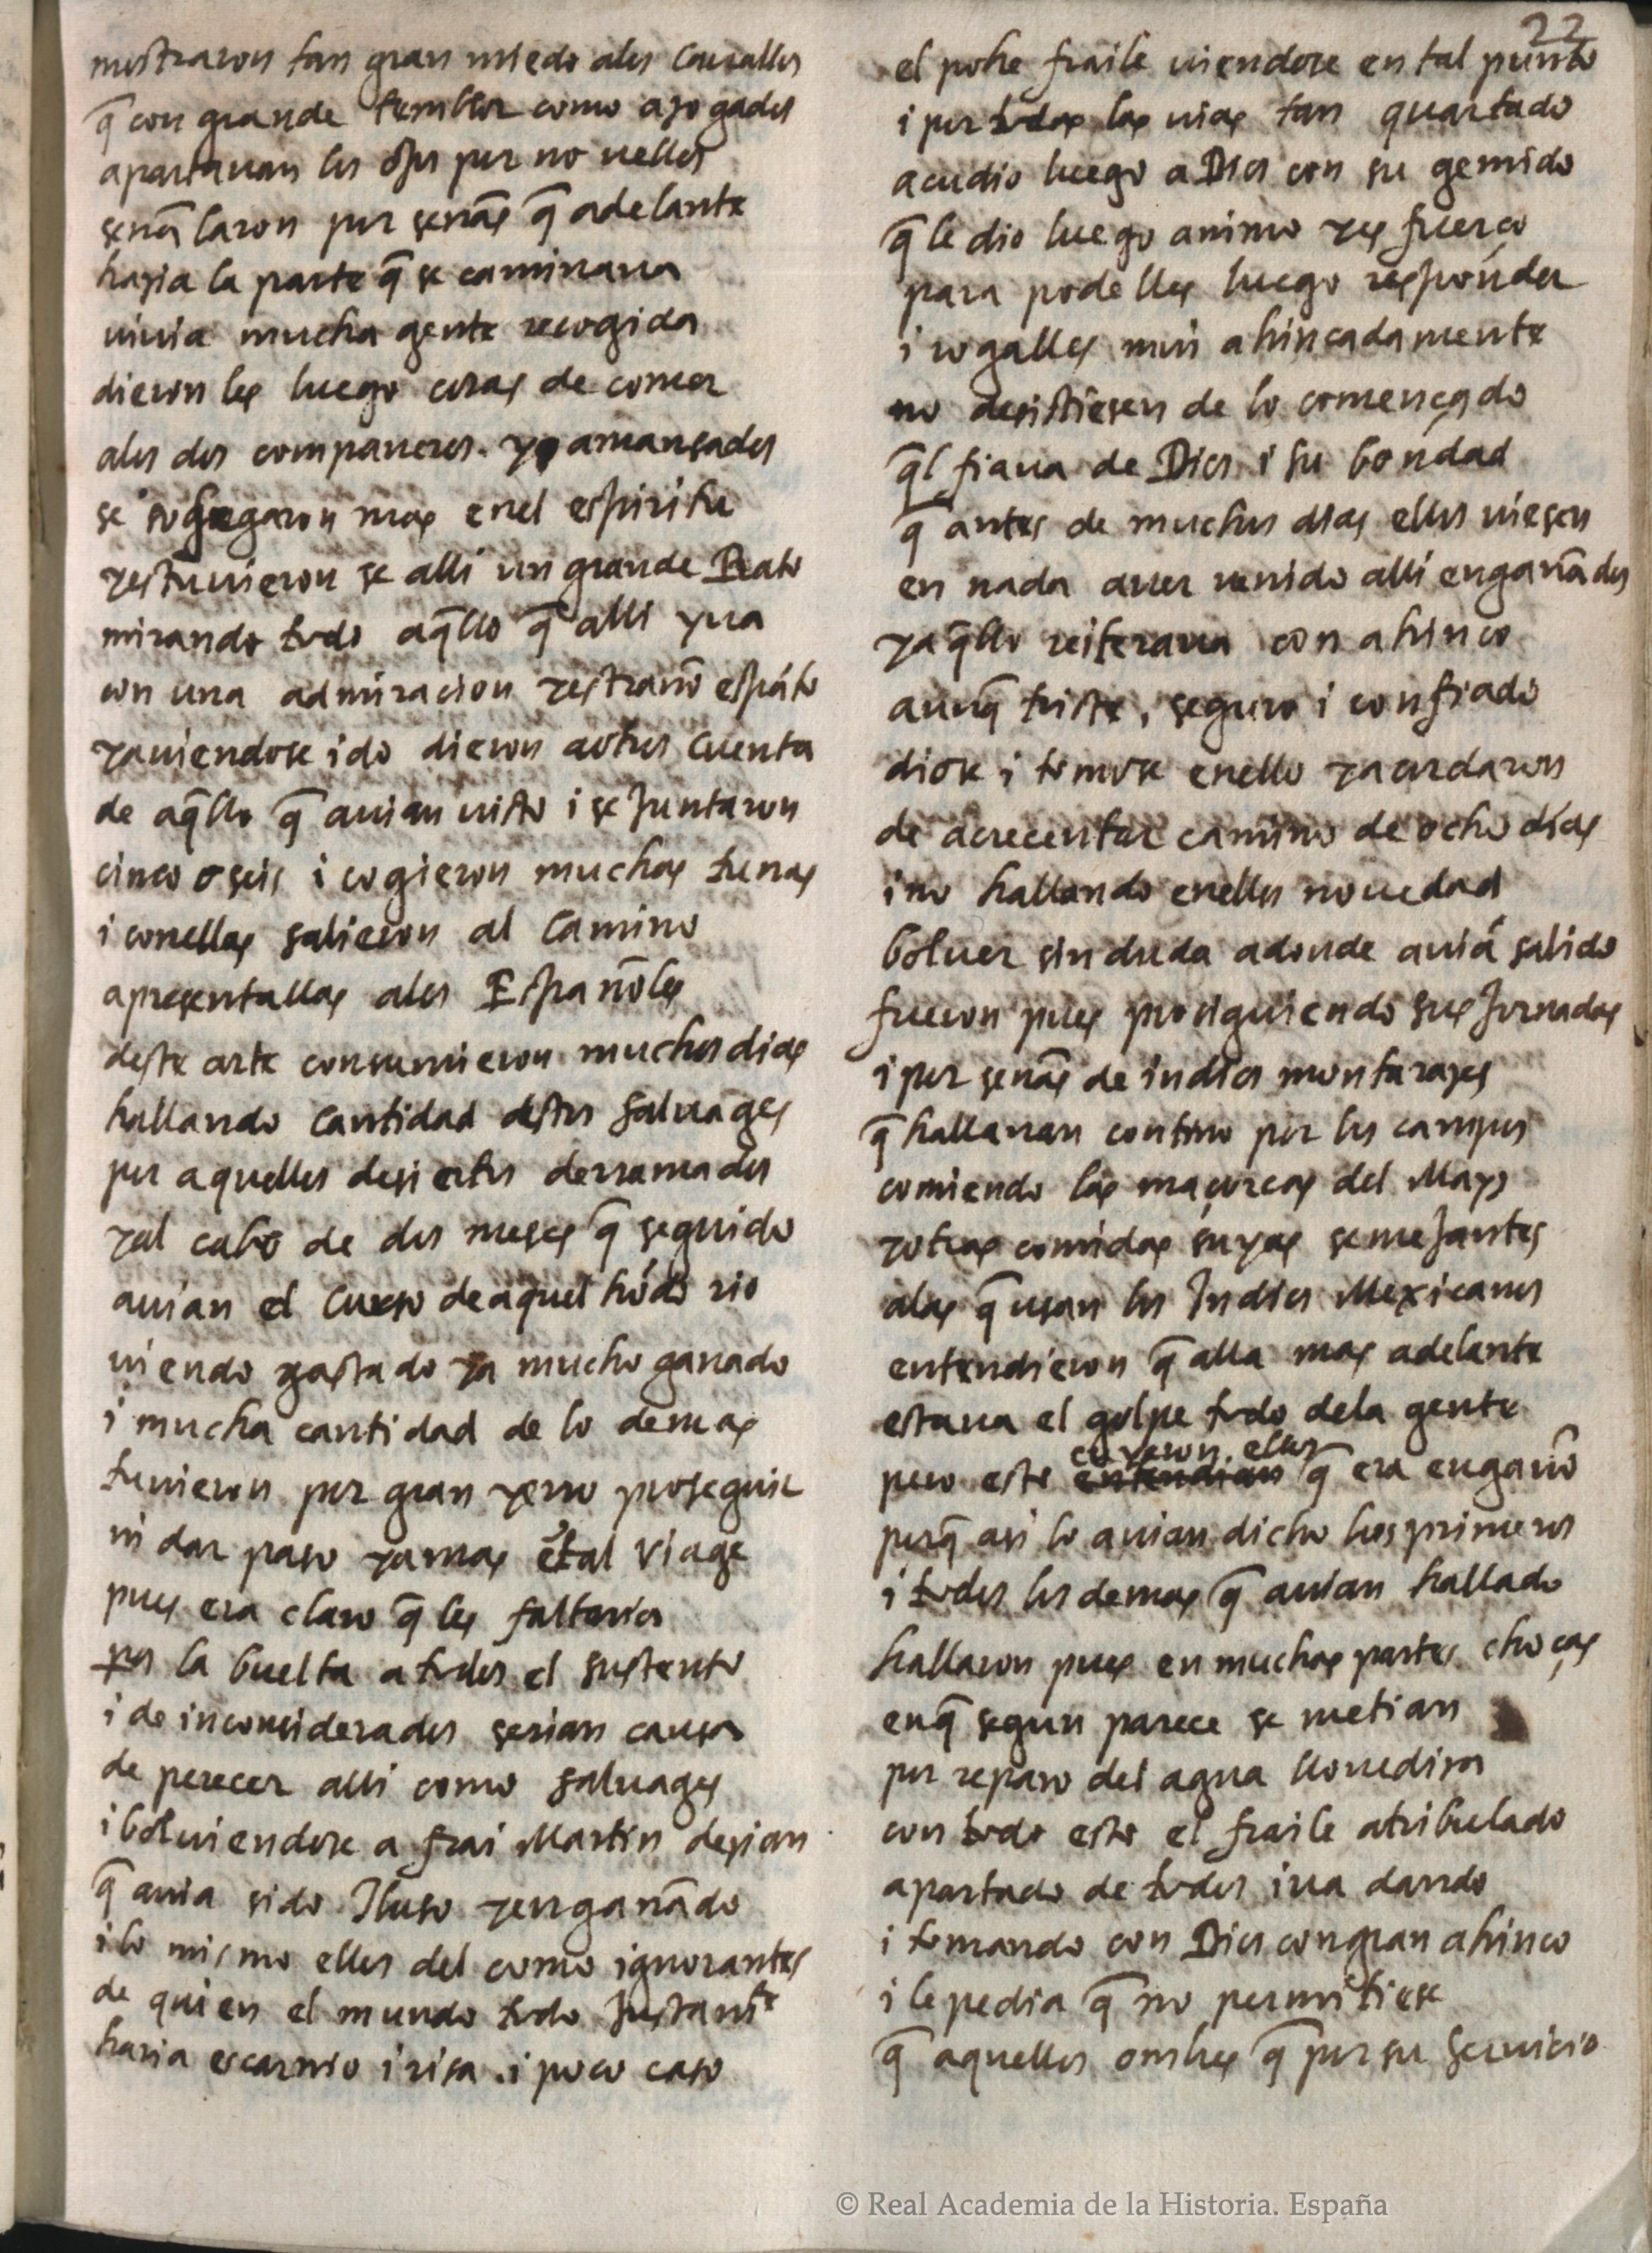 mostraron tan gran miedo alos Cauallos
q̃ con grande temblor como azogados
apartauan los ojos por no vellos
señalaron por señas q̃ adelante
hazia la parte q̃ se caminaua
viuia mucha gente recogida
dieron les luego cosas de comer
alos dos compañeros. y amansados
se sosegaron mas enel espiritu
yestuuieron se alli un grande Rato
mirando todo aq̃llo q̃ alli yua
con una admiracion yestraño espãto
yauiendose ido dieron aotros Cuenta
de aq̃llo q̃ auian visto i se Juntaron
cinco o seis i cogieron muchas tunas
i conellas salieron al Camino
apresentallas alos Españoles
deste arte consumieron muchos dias
hallando Cantidad destos saluages
por aquellos desiertos derramados
yal cabo de dos meses q̃ seguido
auian el Curso de aquel hõdo rio
viendo gastado ya mucho ganado
i mucha cantidad de lo demas
tuuieron por gran yerro proseguir
ni dar paso yamas ẽtal viage
pues era claro q̃ les faltaria
por la buelta a todos el sustento
i de inconsiderados serian causa
de perecer alli como saluages
i boluiendose a frai Martin dezian
q̃ auia sido Iluso yengañado
i lo mismo ellos del como ignorantes
de quien el mundo todo Justamte
haria escarnio i risa. i poco caso
22
el pobre fraile viendose en tal punto
i por todas las vias tan quartado
acudio luego a Dios con su gemido
q̃ le dio luego animo yesfuerço
para podelles luego respõnder
i rogalles mui ahincadamente
no desistiesen de lo començado
q̃l fiaua de Dios i su bondad
q̃ antes de muchos dias ellos viesen
en nada auer venido alli engañados
yaq̃llo reiteraua con ahinco
aunq̃ triste, seguro i confiado
diose i tomose enello yacordaron
de acrecentar camino de ocho días
i no hallando enellos nouedad
boluer sin duda adonde auiã salido
fueron pues prosiguiendo sus Jornadas
i por señas de indios montarazes
q̃ hallauan contino por los campos
comiendo las maçorcas del Mayz
yotras comidas suyas semeJantes
alas q̃ usan los Indios Mexicanos
entendieron q̃ alla mas adelante
estaua el golpe todo dela gente
creyeron ellos
pero esto entendian q̃ era engaño
porq̃ asi lo auian dicho los primeros
i todos los demas q̃ auian hallado
hallaron pues en muchas partes choças
enq̃ segun parece se metian
por reparo del agua llouediza
con todo esto el fraile atribulado
apartado de todos iua dando
i tomando con Dios con gran ahinco
i le pedia q̃ no permitiese
q̃ aquellos ombres q̃ por su seruicio
© Real Academia de la Historia. España